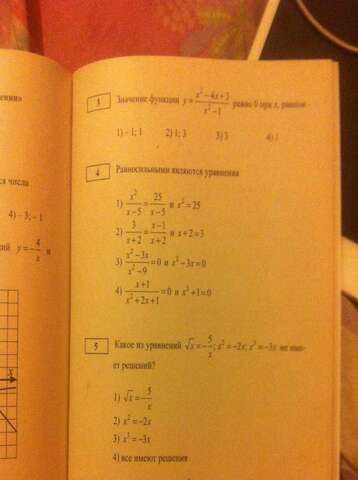 ся числа
4) –3; –1
y = –4/x и
x
3 Значение функции y = (x² – 4x + 3)/(x² – 1) равно 0 при x, равном
1) – 1; 1 2) 1; 3 3) 3 4) 1
4 Равносильными являются уравнения
1) x²/(x – 5) = 25/(x – 5) и x² = 25
2) 3/(x + 2) = (x – 1)/(x + 2) и x + 2 = 3
3) (x² – 3x)/(x² – 9) = 0 и x² – 3x = 0
4) (x + 1)/(x² + 2x + 1) = 0 и x² + 1 = 0
5 Какое из уравнений √x = –5/x; x² = –2x; x³ = –3x не име-
ет решений?
1) √x = –5/x
2) x² = –2x
3) x³ = –3x
4) все имеют решения